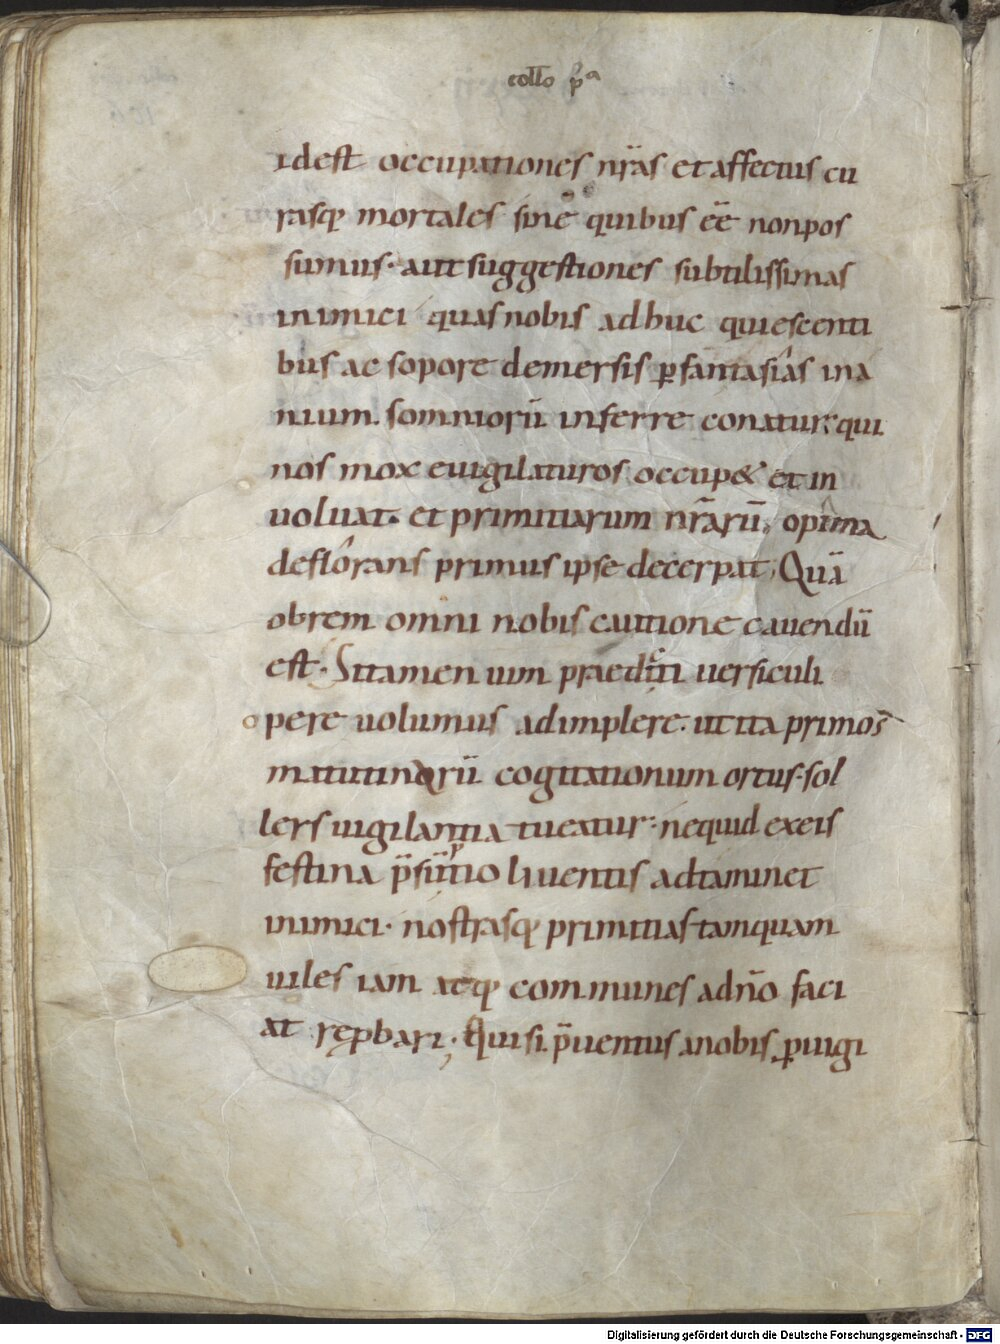 collo pᵃ
idest occupationes nr̄as et affectus cu
rasq; mortales sine quibus eē nonpos
sumus· aut suggestiones subtilissimas
inimici quas nobis adhuc quiescenti
bus ac sopore demersis ꝑ fantasias ina
nium. somniorū inferre conatur: qui
nos mox euigilaturos occup& et in
uoluat. et primitiarum nr̄arū, opima
deflorans primus ipse decerpat; Quā
obrem omni nobis cautione cauendū
est. Si tamen uim praedicti uersiculi
opere uolumus adimplere. ut ita primos
matutinorū cogitationum ortus. sol
lers uigilantia tueatur: nequid exeis
festina p̄sūptio liuentis adtaminet
inimici· nostrasq; primitias tamquam
uiles iam atq; communes adn̄o faci
at rep̱bari. Qui si. p̄uentus anobis ꝑuigi
Digitalisierung gefördert durch die Deutsche Forschungsgemeinschaft - DFG